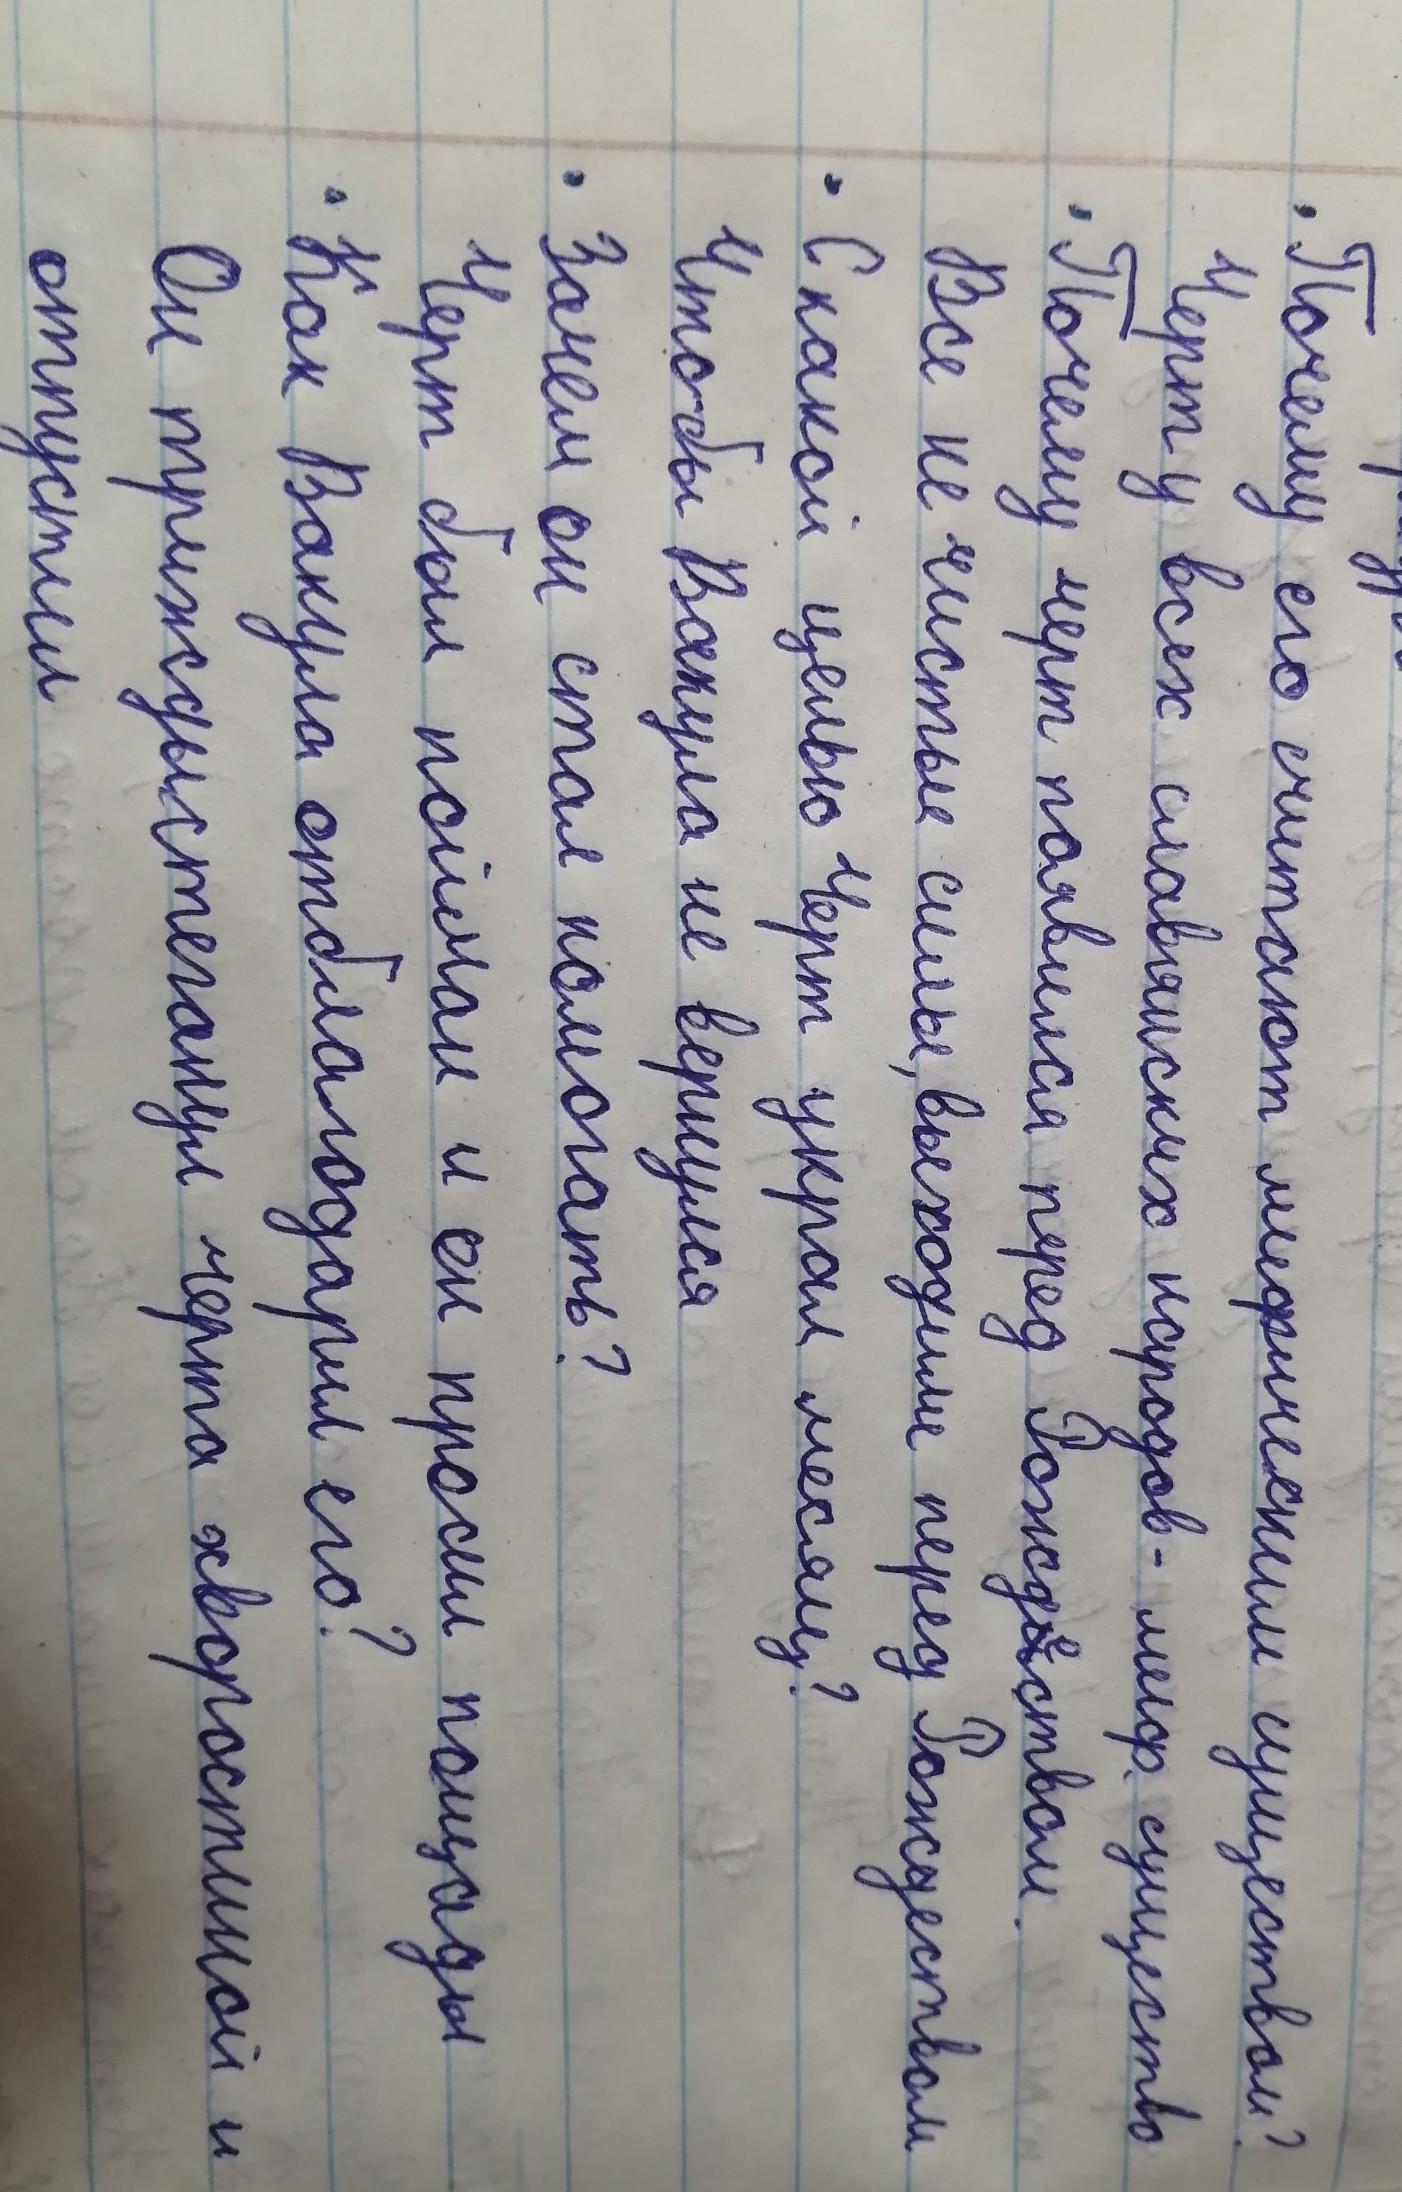 • Почему его считают мифическим существом?
Черт у всех славянских народов - миф. существо
• Почему черт появился перед Рождеством.
Все не чистые силы, выходили перед Рождеством
• С какой целью Черт украл месяц?
Чтобы Вакула не вернулся
• Зачем он стал помогать?
Черт был пойман и он просил пощады
• Как Вакула отблагодарил его?
Он трижды стеганул черта хворостиной и
отпустил